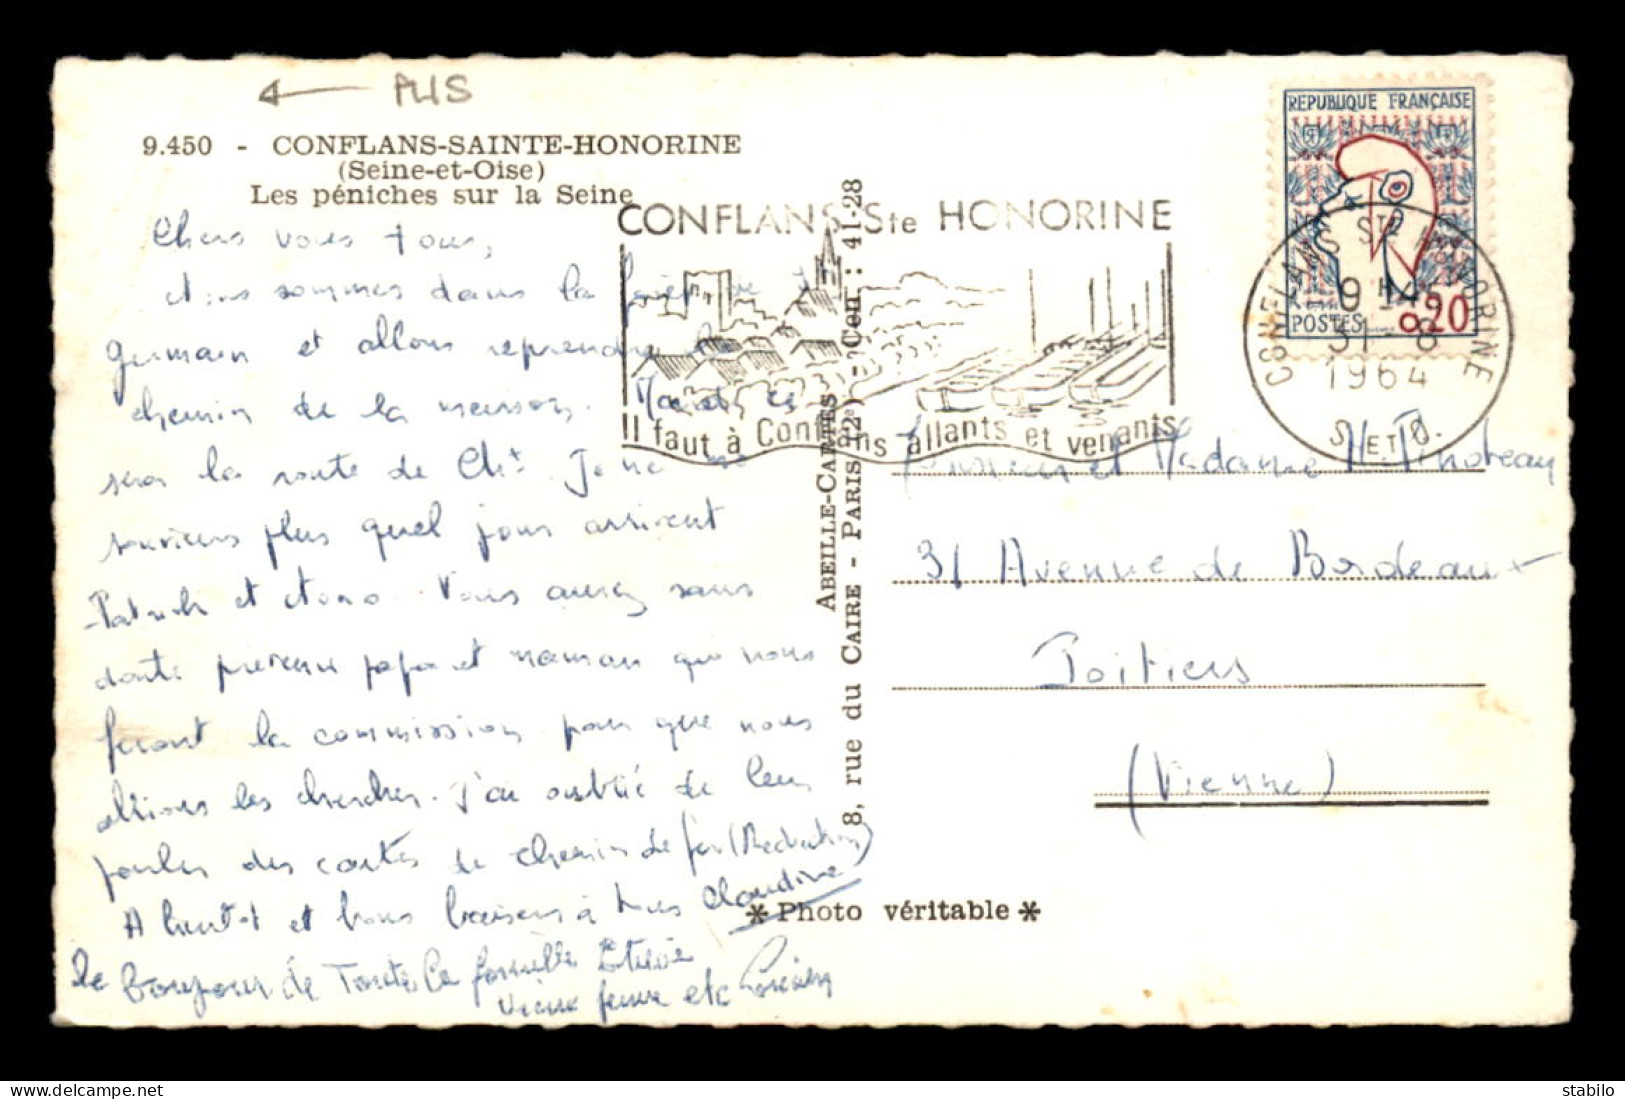 ← PLIS
9.450 - CONFLANS-SAINTE-HONORINE
(Seine-et-Oise)
Les péniches sur la Seine
REPUBLIQUE FRANÇAISE
POSTES 0,20
CONFLANS Ste HONORINE
Il faut à Conflans allants et venants
CONFLANS STE HONORINE
9H45
31-8
1964
S. ET O.
Chers vous tous,
sommes dans la forêt de St
Germain et allons reprendre le
chemin de la maison. Mardi ce
sera la route de Je ne me
souviens plus quel jour arrivent
Patrick et . Vous aurez sans
doute prévenu papa et maman qui nous
feront la commission pour que nous
allions les chercher. J'ai oublié de leur
parler des cartes de chemin de fer (Réduction)
A bientôt et bons baisers à tous Claudine
le bonjour de Toute la famille
ABEILLE-CARTES
8, rue du CAIRE - PARIS (2e) - Cen : 41-28
Monsieur et Madame
31 Avenue de Bordeaux
Poitiers
(Vienne)
* Photo véritable *
stabilo